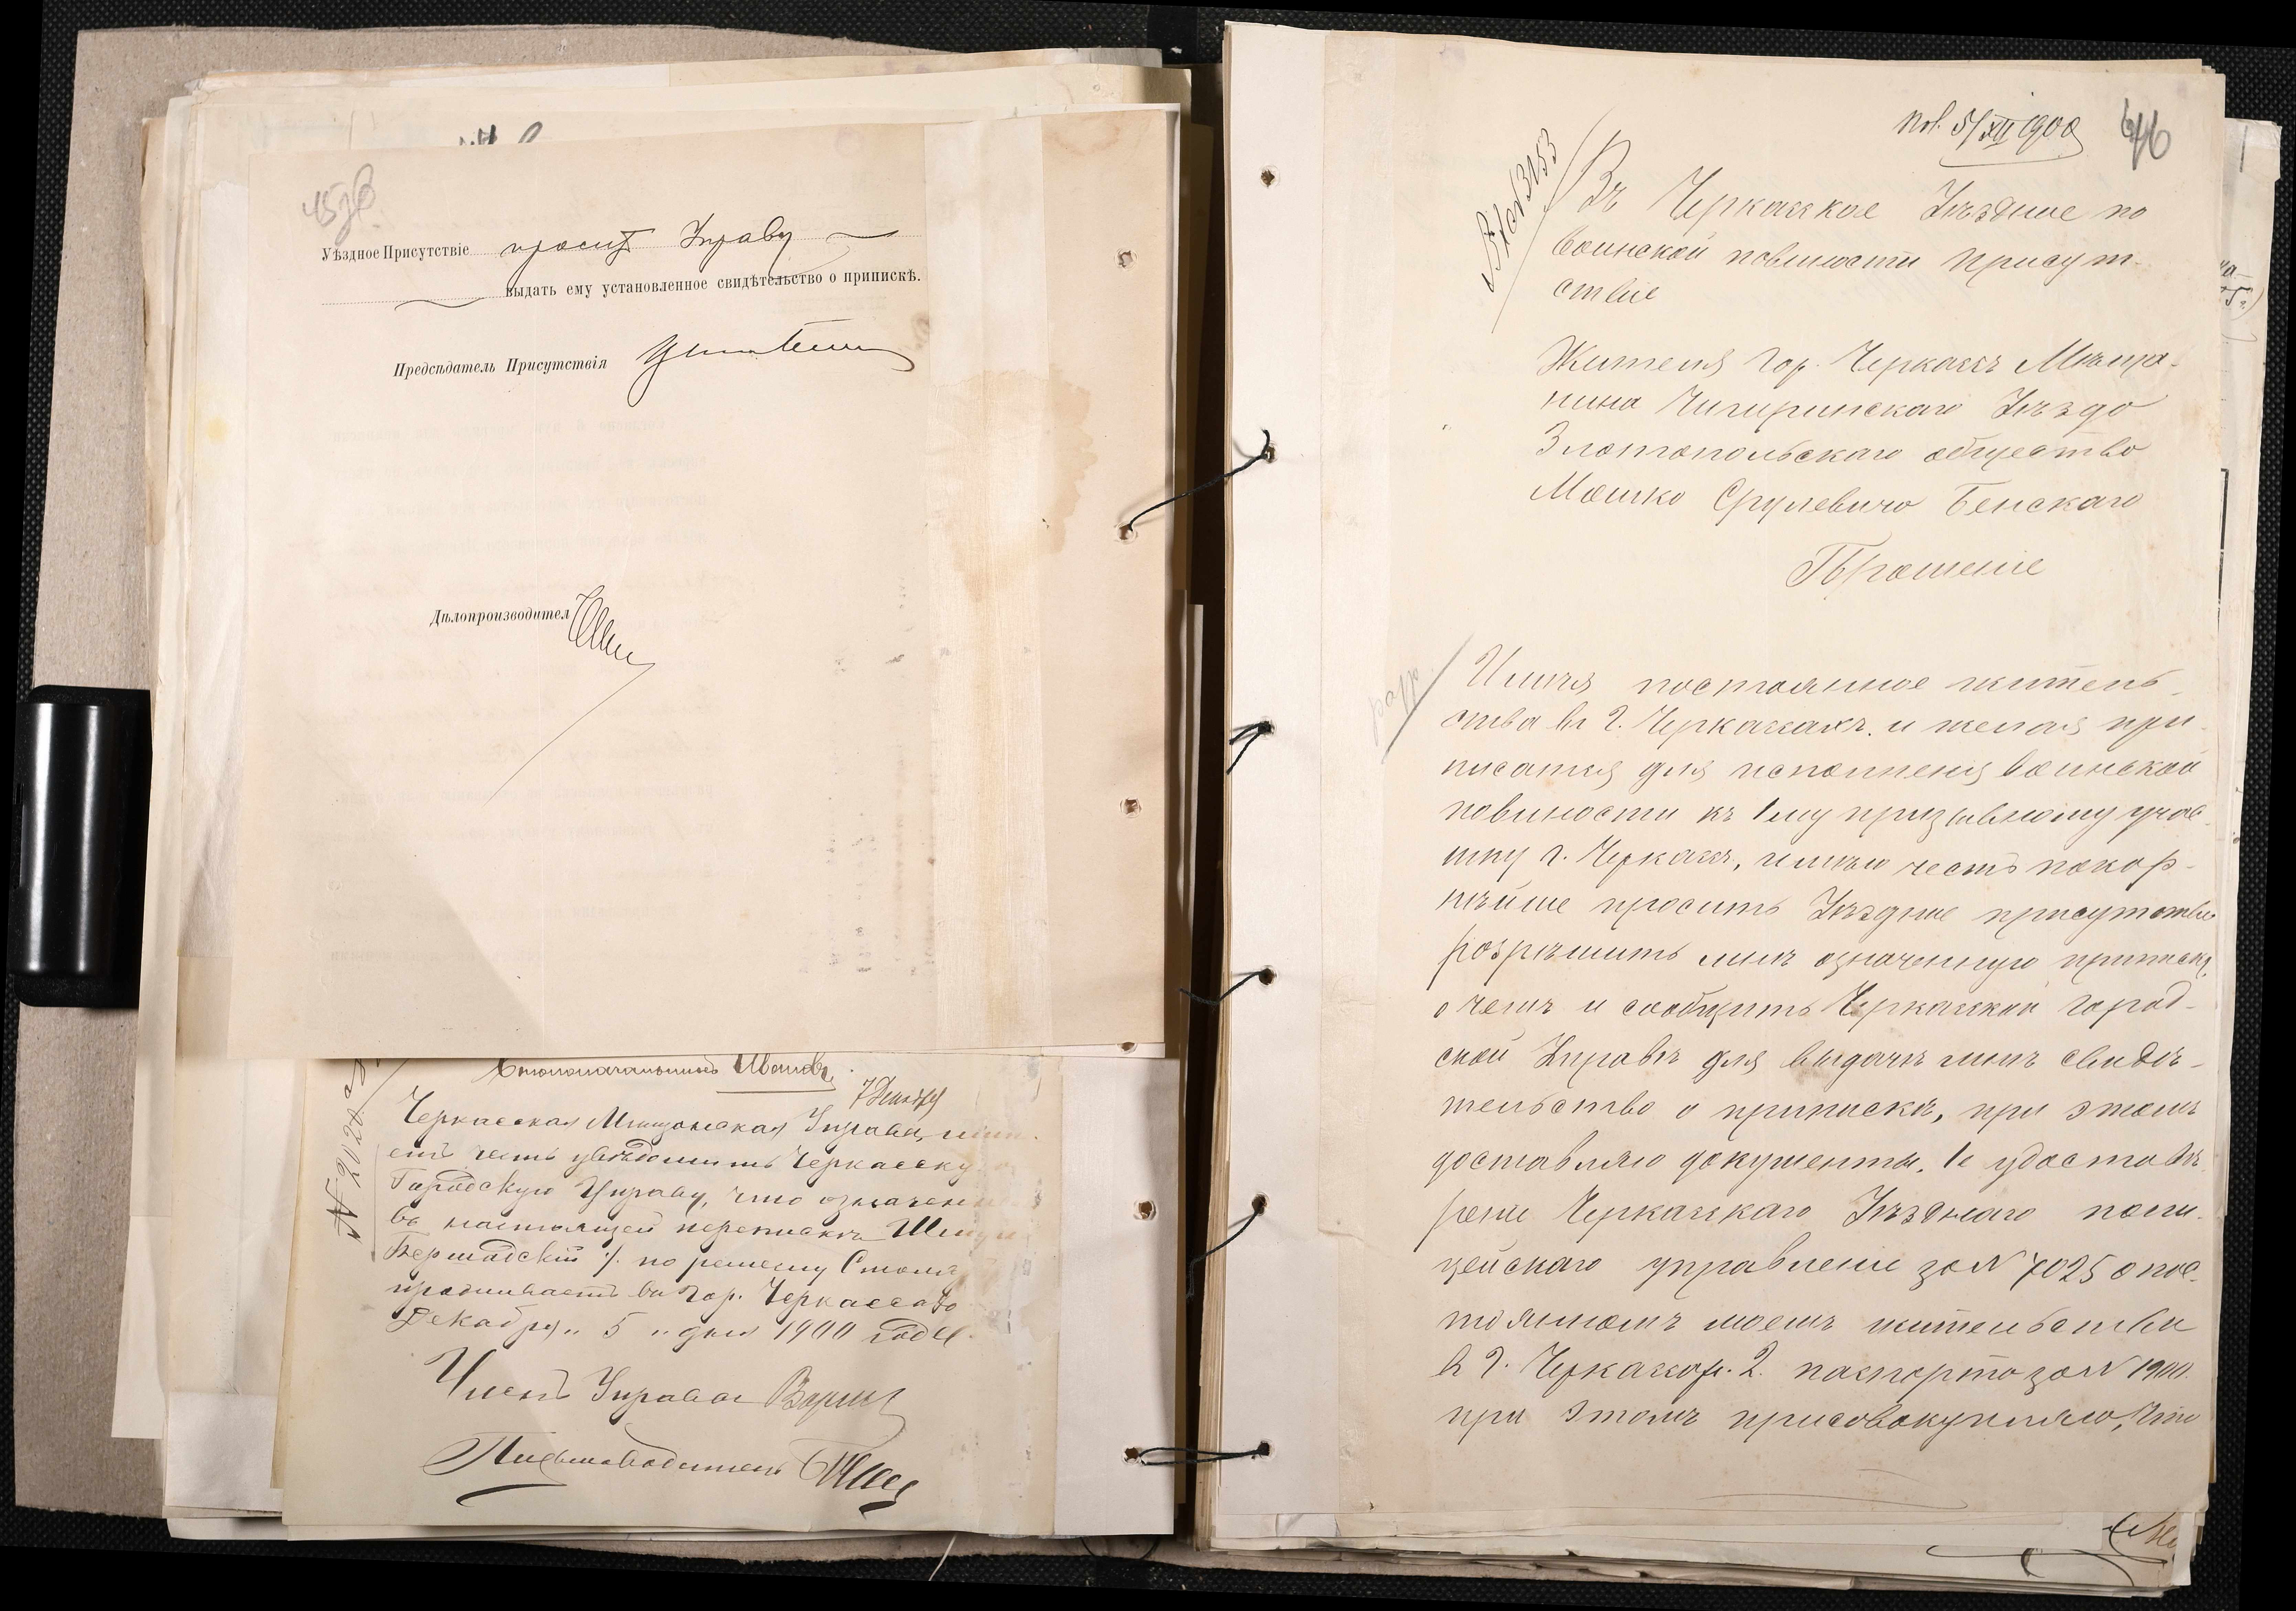 Уѣздное Присутствіе проситъ Управу
выдать ему установленное свидѣтельство о припискѣ.
Предсѣдатель Присутствія
Дѣлопроизводител
Столоначальникъ Ивановъ
7 Декабря
№ 2020
Черкасская Мѣщанская Управа, имѣ
етъ честь увѣдомить Черкасску
Городскую Управу, что означенн
въ настоящей перепискѣ
Бершадскій по ремеслу Столя
проживаетъ въ гор. Черкассахъ
Декабря „ 5 „ дня 1900 года
Членъ Управы
Письмоводитель
пол. 5/XII 1900
46
Вх № 3153
Въ Черкасское Уѣздное по
воинской повиности присут-
ствіе
Жителя гор. Черкассъ Мѣща-
нина Чигиринскаго Уѣзда
Златопольскаго общество
Мошко Срулевича Бенскаго
Прошеніе
Имѣя постоянное житель-
ства въ г. Черкассахъ и желая при-
писатся для исполненія воинской
повиности къ 1му призывному учас-
тку г. Черкассъ, имѣю честь покор-
нѣйше просить Уѣздное присутствіе
розрѣшить мнѣ означенную приписку
о чемъ и сообщить Черкасской город-
ской Управѣ для выдачѣ мнѣ свидѣ-
тельство о припискѣ, при этомъ
доставляю документы. 1е удостовѣ-
реніе Черкасскаго Уѣзднаго поли-
цейскаго управленіе за № 7025 о пос-
тоянномъ моемъ жительстви
в г. Черкассах. 2. паспорто за № 1900.
при этомъ присовокупляю, что